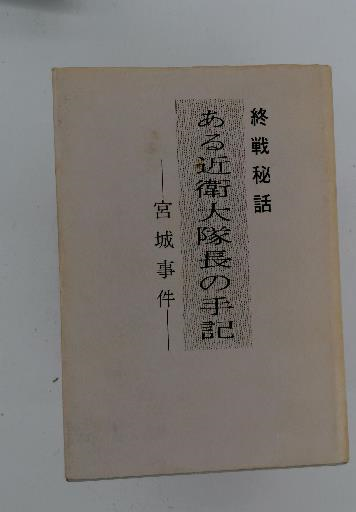 終戦秘話
ある近衛大隊長の手記
──宮城事件──